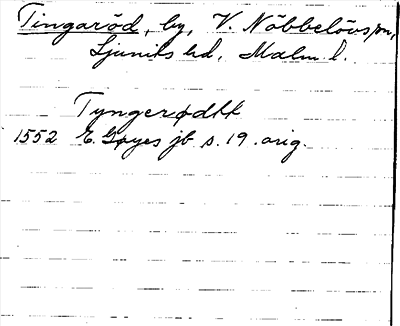 Tingaröd, by, V. Nöbbelövs sn,
Ljunits hd, Malm. l.
Tyngerødtk
1552 E. Gøyes jb s. 19. orig.